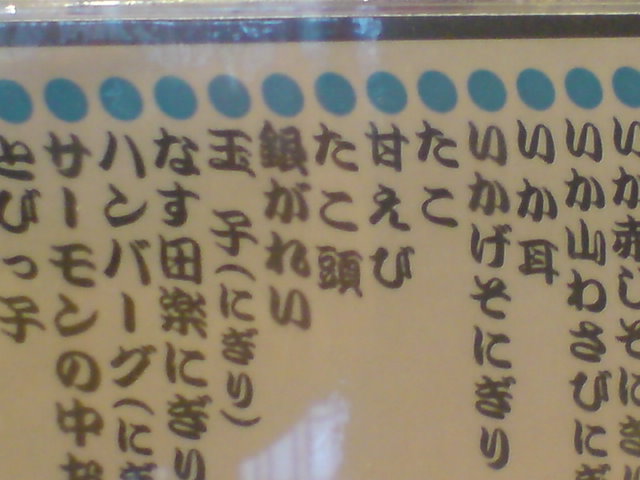 いか赤しそにぎり
いか山わさびにぎ
いか耳
いかげそにぎり
たこ
甘えび
たこ頭
銀がれい
玉子(にぎり)
なす田楽にぎり
ハンバーグ(にぎ
サーモンの中お
とびっ子